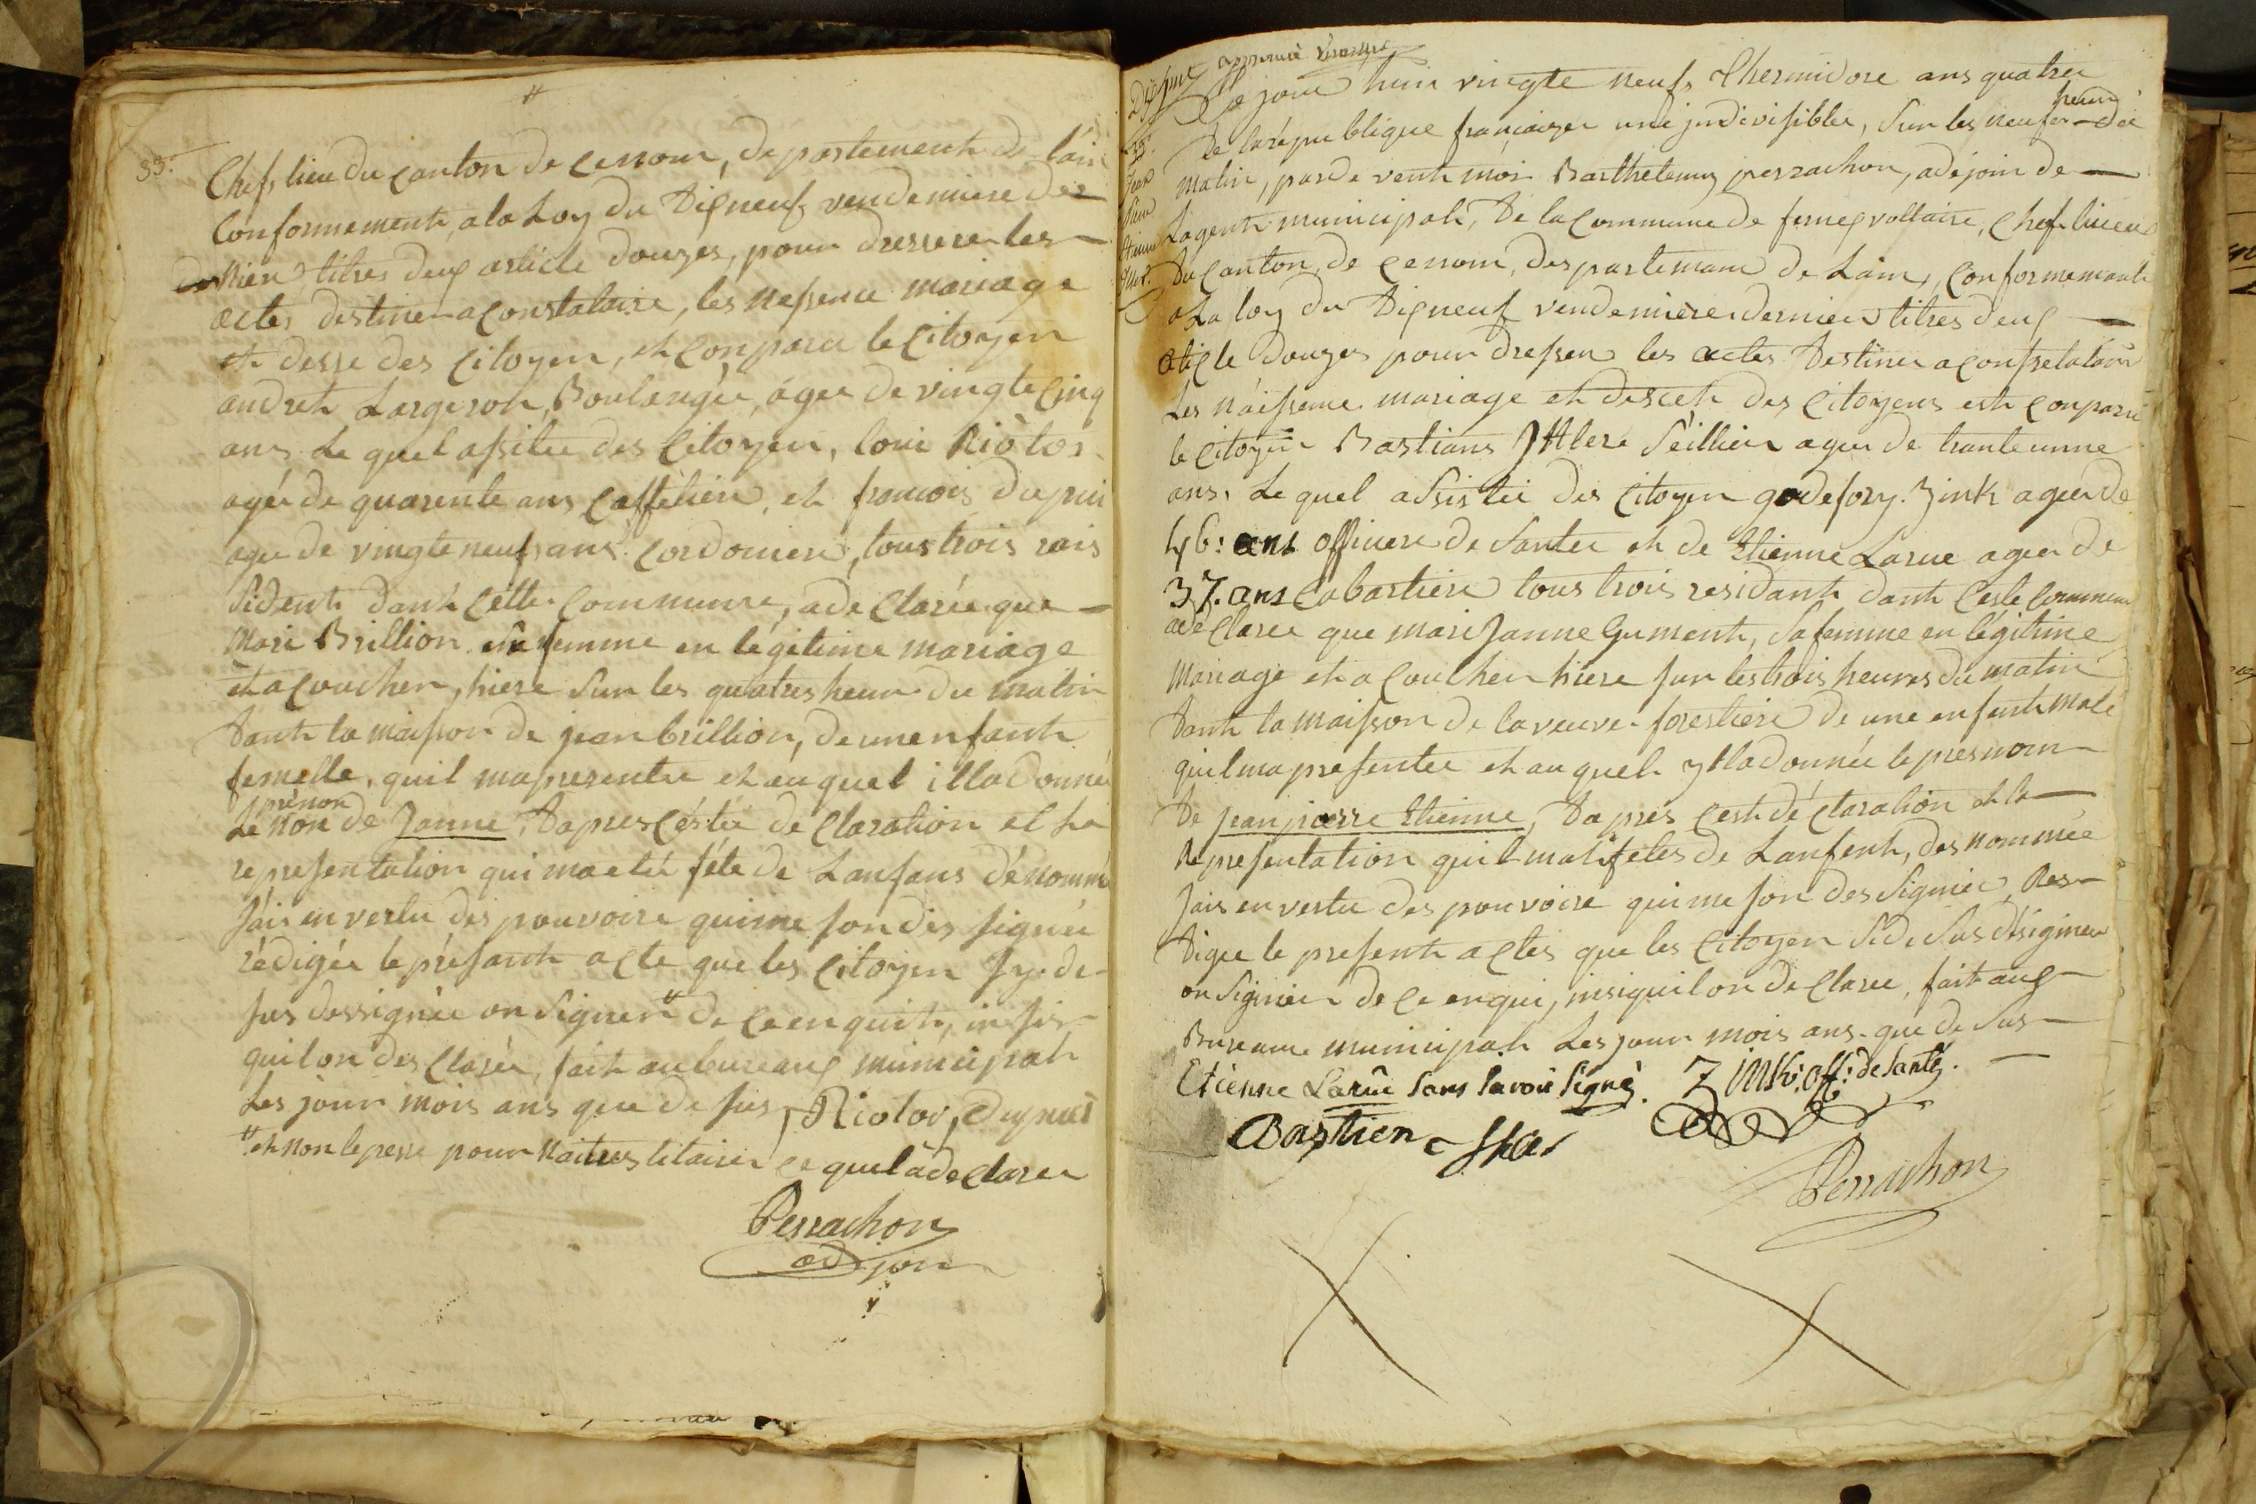 33.
Chef, lieu du canton de cenom, departement de l'ain
Conformement, a la Loy du Dixneuf vendemiere der
nier titres deux article douzes, pour dressere les
actes destiner a constataire, les nessence mariage
et desse des Citoyen, et Conparu le Citoyen
andreh Largeron, Boulangér, ágee de vingte Cinq
ans Le quel assitee des Citoyen, loui Riòtor
agée de quarente ans Caffétiere, et francois dupui
agee de vingte neuf ans Cordoniere, tous trois rais
sident danh Cétte Commune, a de Clarée que
Mari Brillion sa femme en legitime mariage
et a Coucher, hiere sur les quatres heur du matin
danh la maison de jean brillion, de un enfanh
femelle, quil ma presentee et au quel il la donnée
prénon
Lé non de Janne, Dapres Céstée de Claration et la
representation qui ma etée féte de Lanfans dénommé
Jais en vertu des pouvoire quime son des signée
rédigée le présanth acte que les Citoyen sy. de
sus dessignée on signer # de ce enquih, insis
quil on des Clarée, fait au bureaux municipah
Les jour mois ans que de sus, Riotor, Dupuis
# et non le pere pour naitres litairee ce quil a de Clarer
Perrachon
adjoin
approuvé
Ce jour huis vingte neufs Thermidore ans quatrée
heure
De la republique francaizee une jndivisiblee, Sur les neufer du
33.
Jean
Matin, par de venh moi Barthelemy perrachon, adejoin de
Lagenh municipah, De la Commune de ferney voltaire, Chef lieu
Du Canton, de Cenom, des partemanh de Lain, Conformemanh
a La loy du Dixneuf vendemiere dernier titres deux
aticle Douzes pour dressere les actes Destinee a constatair
Les náissence mariage eh desceh des Citoyens esh Conparu
le Citoyen Bastians Jttlere Séillier agee de trante unne
ans, Le quel assistée des Citoyen godefory. Zink agee de
46: ans officere de Santée eh de Etienne Larue agee de
37. ans Cabartiere tous trois residanh danh Ceste Commune
a de Claree que mari Janne Gumenh, sa femme en légitime
Mariage eh a Coulher hiere sur les trois heures du matin
Danh la maisson de la veuve forestiere de une enfenh male
quil ma presentee eh au queh yl la donnée le presnom
De jean pierre Etienne, Daprés Cesh dé Claration eh la
Representation quil ma etefetes de Lanfenh, des nommée
Jais en vertu des pouvoire quime son des Signée, Res
Digee le presenh actes que les Citoyen Si de Sus désigner
on Signée de Ce enqui, insi quil on de Claree, fait aux
Bureaux municipah Les jour mois ans que de Sus
Etienne Larue sans savoir Signé. Zink: off: de Santé.
Bastien
Perrachon